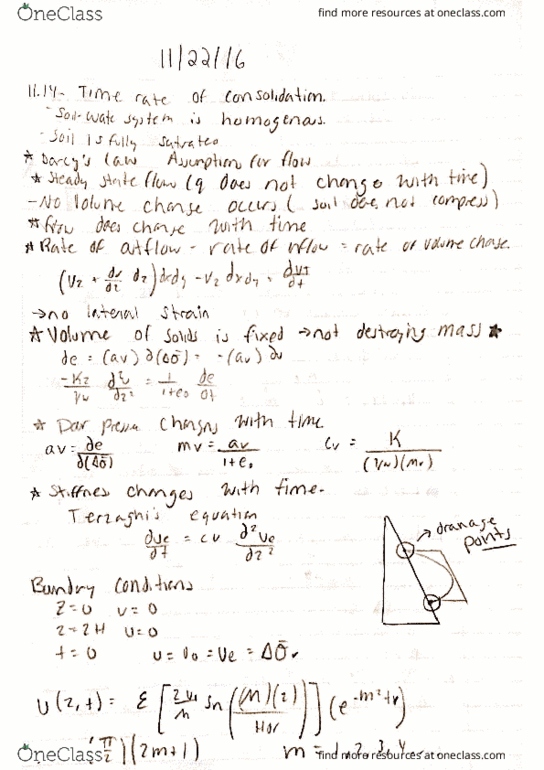 OneClass
find more resources at oneclass.com
11/22/16
11.14- Time rate of consolidation.
- Soil-wate system is homogenous.
- Soil is fully saturated
* Darcy's law Assumption for flow
* Steady state flow (q does not change with time)
- No volume change occurs ( soil does not compress)
* flow does change with time
* Rate of outflow - rate of inflow = rate of volume change.
(Vz + dv/dz dz) dxdy - Vz dxdy = dVT/dt
→ no lateral strain
* Volume of solids is fixed → not destroying mass *
de = (av) ∂(Δσ̄) = -(av) ∂u
-Kz/γw ∂²u/∂z² = 1/1+e₀ de/∂t
changes with time
av = de/∂(Δσ̄) mv = av/1+e₀ Cv = K/(γw)(mv)
* Stiffness changes with time.
Terzaghi's equation
∂ue/∂t = cv ∂²ue/∂z²
→ dranage
points
Bundry conditions
z=0 u=0
z=2H u=0
t=0 u= u₀ = ue = Δσ̄
u(z,t) = Σ [2u₀/M sn ((M)(z)/Hdr)] (e^-m²tv)
(π/2)(2m+1) m = 1,2,3,4
OneClass
find more resources at oneclass.com